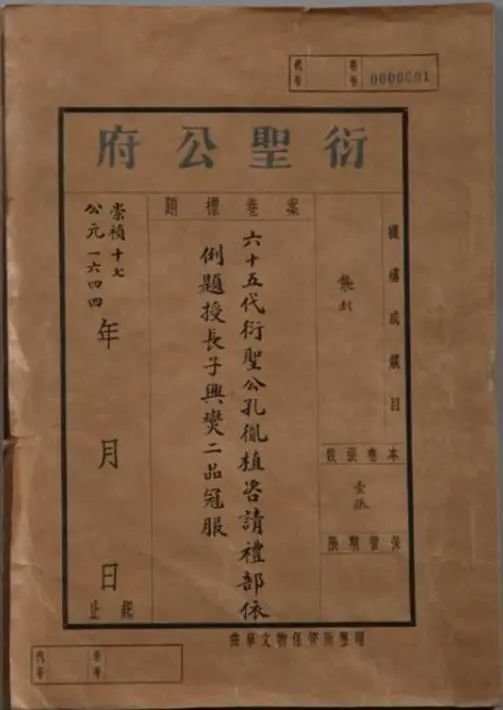 代号 卷号 0000001
衍聖公府
機構或類目
襲封
本卷張數
壹張
保管期限
案卷標題
六十五代衍聖公孔胤植咨請禮部依
例題授長子興燮二品冠服
崇禎十七
公元一六四四
年 月 日
起止
曲阜文物保管所整理
代号 卷号